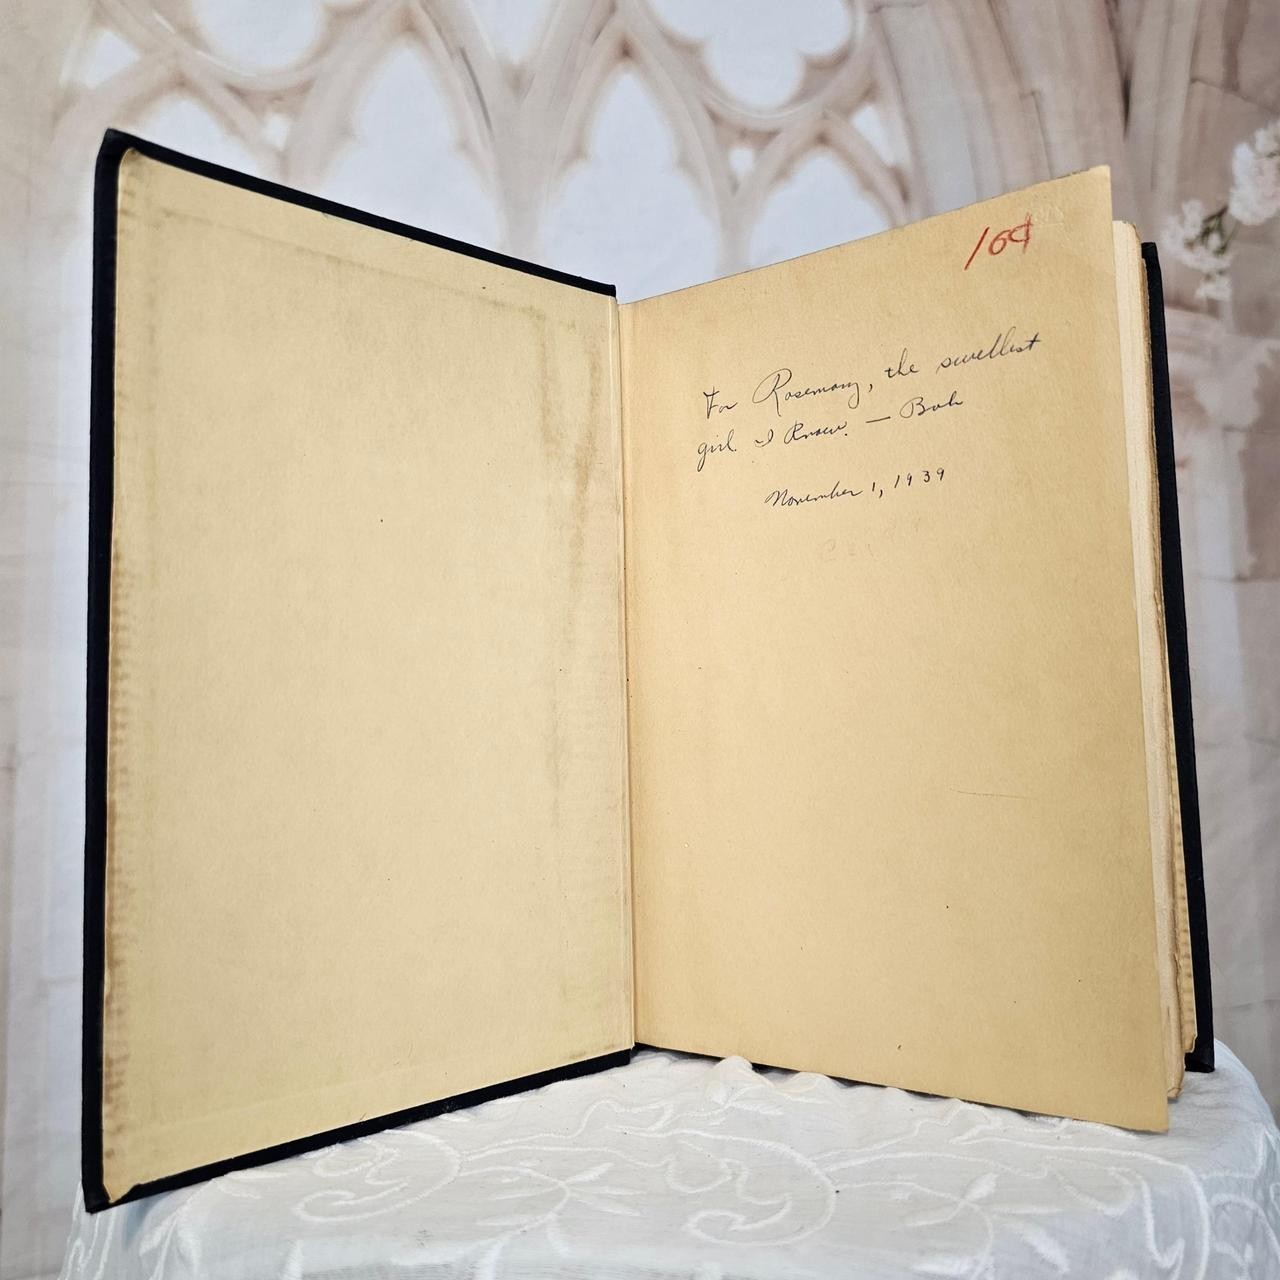 169
For Rosemary, the swellest
girl I know. — Bob
November 1, 1939